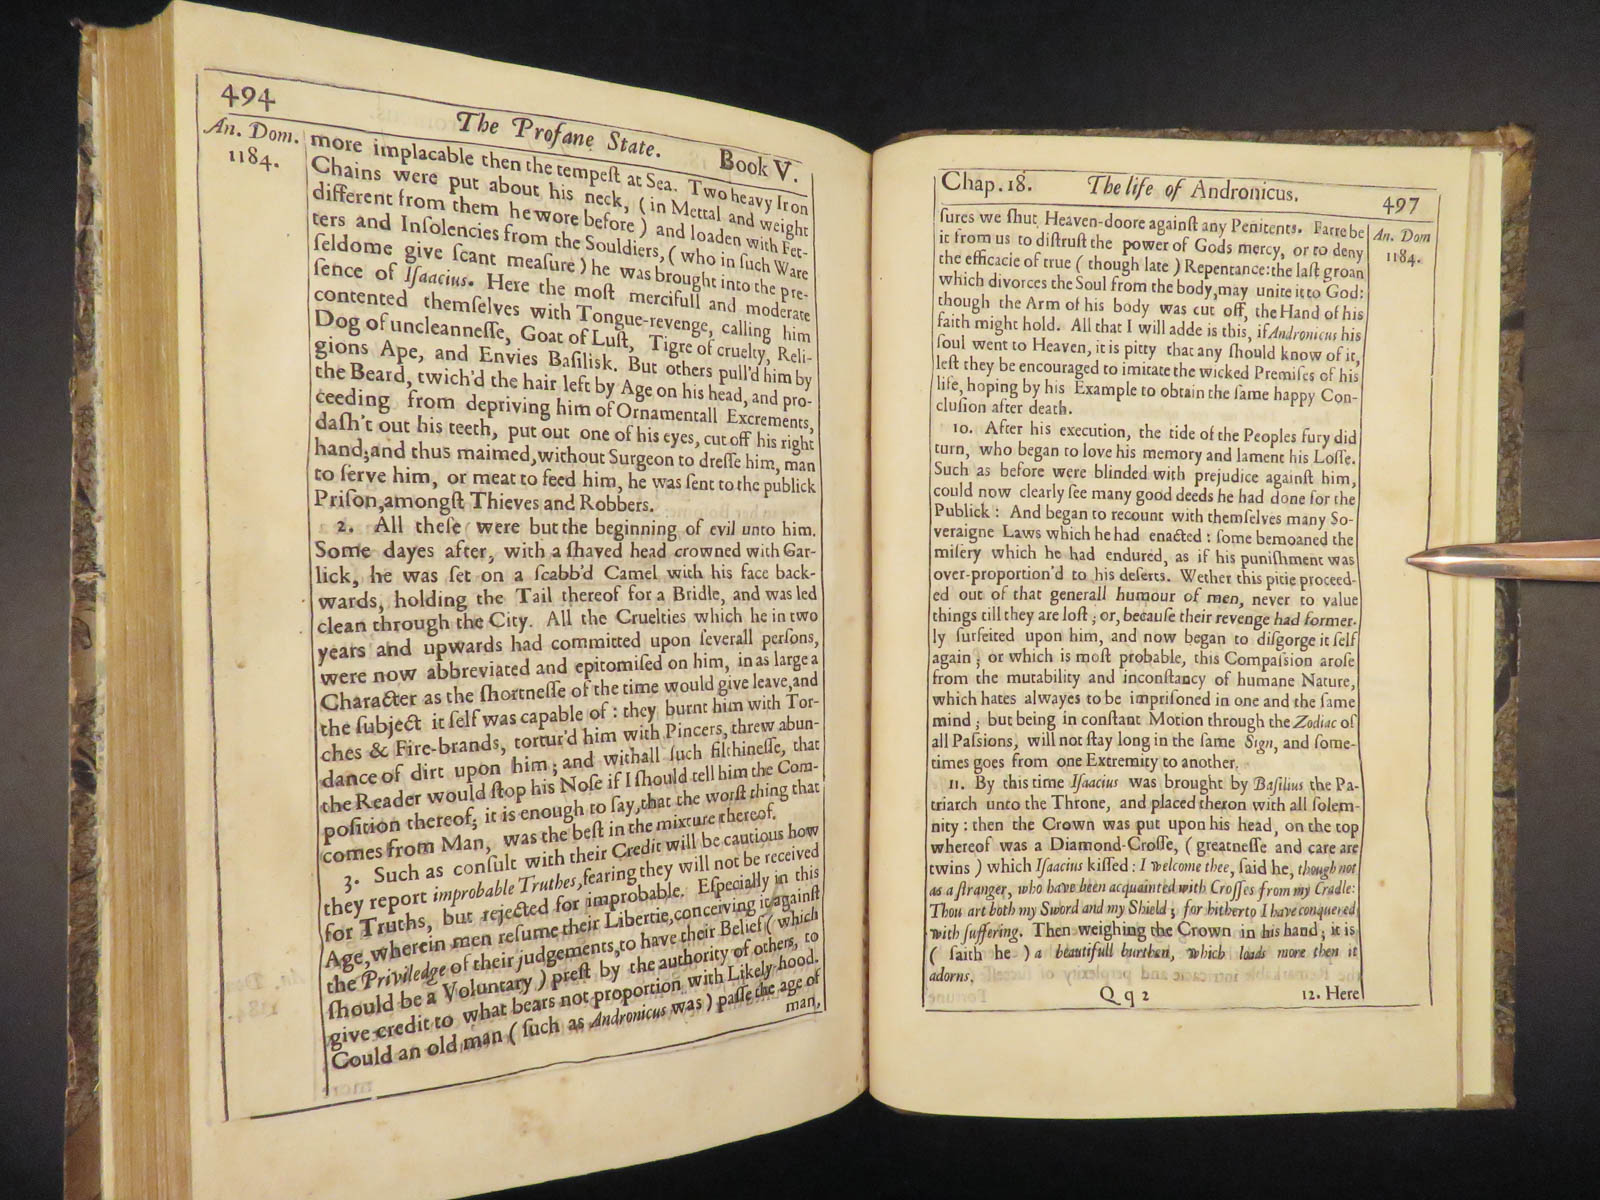 494
The Profane State. Book V.
An. Dom.
1184.
more implacable then the tempeſt at Sea. Two heavy Iron
Chains were put about his neck, (in Mettal and weight
different from them he wore before) and loaden with Fet-
ters and Inſolencies from the Souldiers, (who in ſuch Ware
ſeldome give ſcant meaſure) he was brought into the pre-
ſence of Iſaacius. Here the moſt mercifull and moderate
contented themſelves with Tongue-revenge, calling him
Dog of uncleanneſſe, Goat of Luſt, Tigre of cruelty, Reli-
gions Ape, and Envies Baſilisk. But others pull'd him by
the Beard, twich'd the hair left by Age on his head, and pro-
ceeding from depriving him of Ornamentall Excrements,
daſh't out his teeth, put out one of his eyes, cut off his right
hand; and thus maimed, without Surgeon to dreſſe him, man
to ſerve him, or meat to feed him, he was ſent to the publick
Priſon, amongſt Thieves and Robbers.
2. All theſe were but the beginning of evil unto him.
Some dayes after, with a ſhaved head crowned with Gar-
lick, he was ſet on a ſcabb'd Camel with his face back-
wards, holding the Tail thereof for a Bridle, and was led
clean through the City. All the Cruelties which he in two
years and upwards had committed upon ſeverall perſons,
were now abbreviated and epitomiſed on him, in as large a
Character as the ſhortneſſe of the time would give leave, and
the ſubject it ſelf was capable of: they burnt him with Tor-
ches & Fire-brands, tortur'd him with Pincers, threw abun-
dance of dirt upon him; and withall ſuch filthineſſe, that
the Reader would ſtop his Noſe if I ſhould tell him the Com-
poſition thereof; it is enough to ſay, that the worſt thing that
comes from Man, was the beſt in the mixture thereof.
3. Such as conſult with their Credit will be cautious how
they report improbable Truthes, fearing they will not be received
for Truths, but rejected for improbable. Eſpecially in this
Age, wherein men reſume their Libertie, conceving it againſt
the Priviledge of their judgements, to have their Belief (which
ſhould be a Voluntary) preſt by the authority of others, to
give credit to what bears not proportion with Likely-hood.
Could an old man (ſuch as Andronicus was) paſſe the age of
man,
Chap. 18. The life of Andronicus. 497
An. Dom
1184.
ſures we ſhut Heaven-doore againſt any Penitents. Farre be
it from us to diſtruſt the power of Gods mercy, or to deny
the efficacie of true (though late) Repentance: the laſt groan
which divorces the Soul from the body, may unite it to God:
though the Arm of his body was cut off, the Hand of his
faith might hold. All that I will adde is this, if Andronicus his
ſoul went to Heaven, it is pitty that any ſhould know of it,
left they be encouraged to imitate the wicked Premiſes of his
life, hoping by his Example to obtain the ſame happy Con-
cluſion after death.
10. After his execution, the tide of the Peoples fury did
turn, who began to love his memory and lament his Loſſe.
Such as before were blinded with prejudice againſt him,
could now clearly ſee many good deeds he had done for the
Publick: And began to recount with themſelves many So-
veraigne Laws which he had enacted: ſome bemoaned the
miſery which he had endured, as if his puniſhment was
over-proportion'd to his deſerts. Wether this pitie proceed-
ed out of that generall humour of men, never to value
things till they are loſt; or, becauſe their revenge had former-
ly ſurfeited upon him, and now began to diſgorge it ſelf
again; or which is moſt probable, this Compaſsion aroſe
from the mutability and inconſtancy of humane Nature,
which hates alwayes to be impriſoned in one and the ſame
mind; but being in conſtant Motion through the Zodiac of
all Paſsions, will not ſtay long in the ſame Sign, and ſome-
times goes from one Extremity to another.
11. By this time Iſaacius was brought by Baſilius the Pa-
triarch unto the Throne, and placed theron with all ſolem-
nity: then the Crown was put upon his head, on the top
whereof was a Diamond-Croſſe, (greatneſſe and care are
twins) which Iſaacius kiſſed: I welcome thee, ſaid he, though not
as a ſtranger, who have been acquainted with Croſſes from my Cradle:
Thou art both my Sword and my Shield; for hitherto I have conquered
with ſuffering. Then weighing the Crown in his hand; it is
(ſaith he) a beautifull burthen, which loads more then it
adorns.
Qq2 12. Here